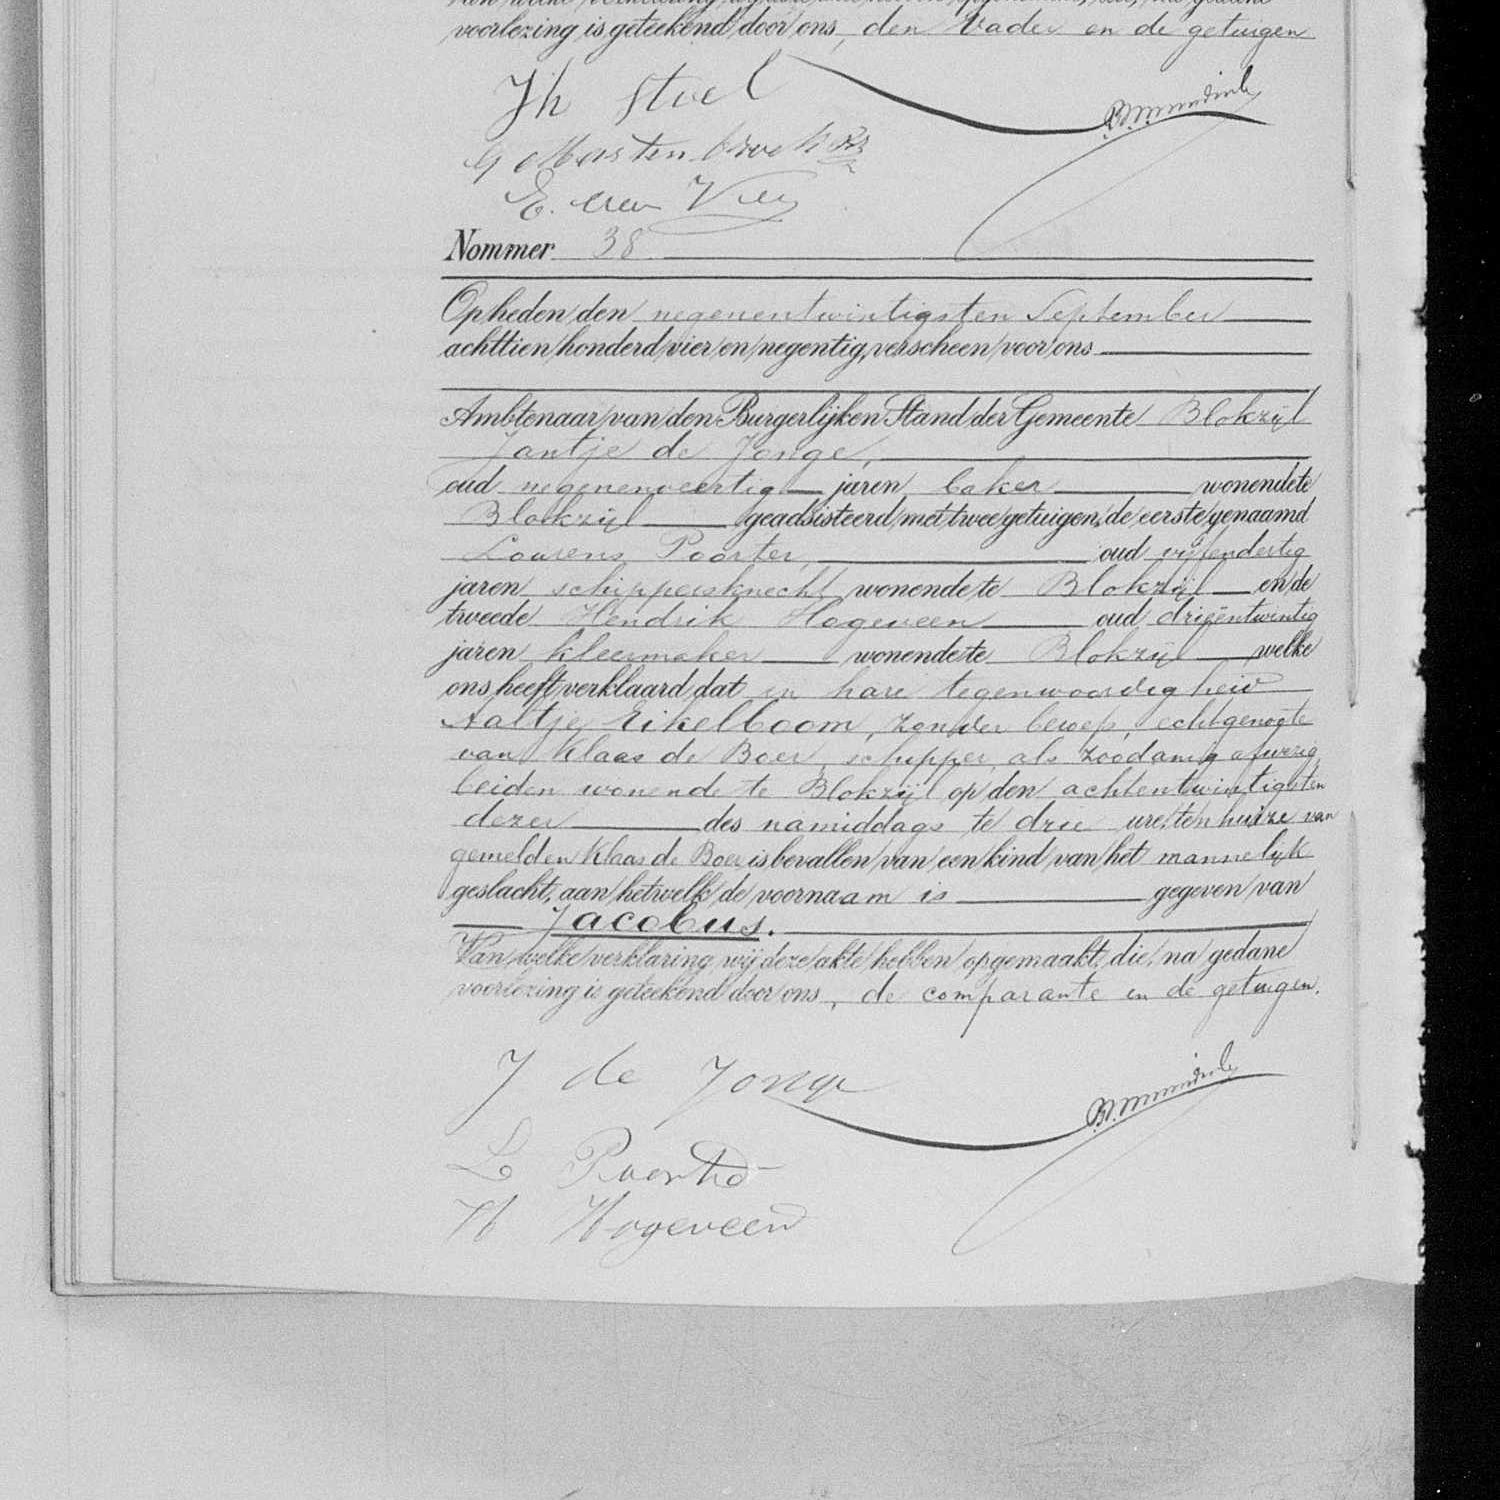 voorlezing is geteekend door ons, den Vader en de getuigen
Jh Stoel
E. van
Nommer 38
Opheden den negenentwintigsten September
achttien honderd vier en negentig, verscheen voor ons
Ambtenaar van den Burgerlijken Stand der Gemeente Blokzijl
Jantje de Jonge,
oud negenenveertig jaren, baker wonende te
Blokzijl geadsisteerd met twee getuigen, de eerste genaamd
Lourens Poorter, oud vijfendertig
jaren, schippersknecht wonende te Blokzijl en de
tweede Hendrik Hogeveen oud drieëntwintig
jaren kleermaker wonende te Blokzijl welke
ons heeft verklaard dat in hare tegenwoordigheid
Aaltje Eikelboom, zonder beroep, echtgenoote
van Klaas de Boer, schipper, als zoodanig afwezig,
beiden wonende te Blokzijl op den achtentwintigsten
dezer des namiddags te drie ure, ten huize van
gemelden Klaas de Boer is bevallen van een kind van het mannelijk
geslacht, aan hetwelk de voornaam is gegeven van
Jacobus.
Van welke verklaring wij deze akte hebben opgemaakt, die, na gedane
voorlezing is geteekend door ons, de comparante en de getuigen.
J de Jonge
L Poorter
H Hogeveen